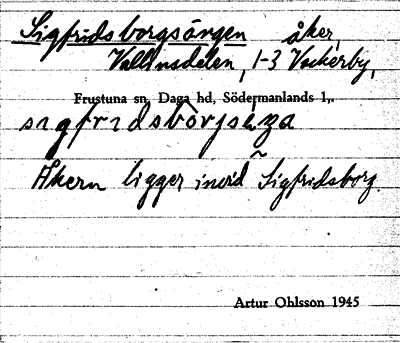 Sigfridsborgsängen åker,
Vallinsdelen, 1-3 Vackerby,
Frustuna sn, Daga hd, Södermanlands l.,
Åkern ligger invid Sigfridsborg.
Artur Ohlsson 1945